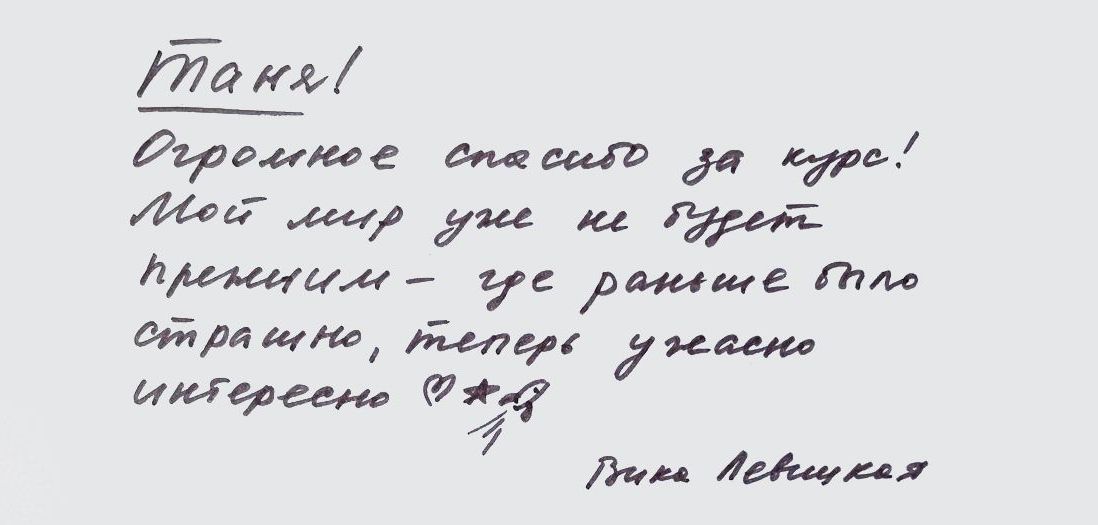 Таня!
Огромное спасибо за курс!
Мой мир уже не будет
прежним – где раньше было
страшно, теперь ужасно
интересно
Вика Левицкая